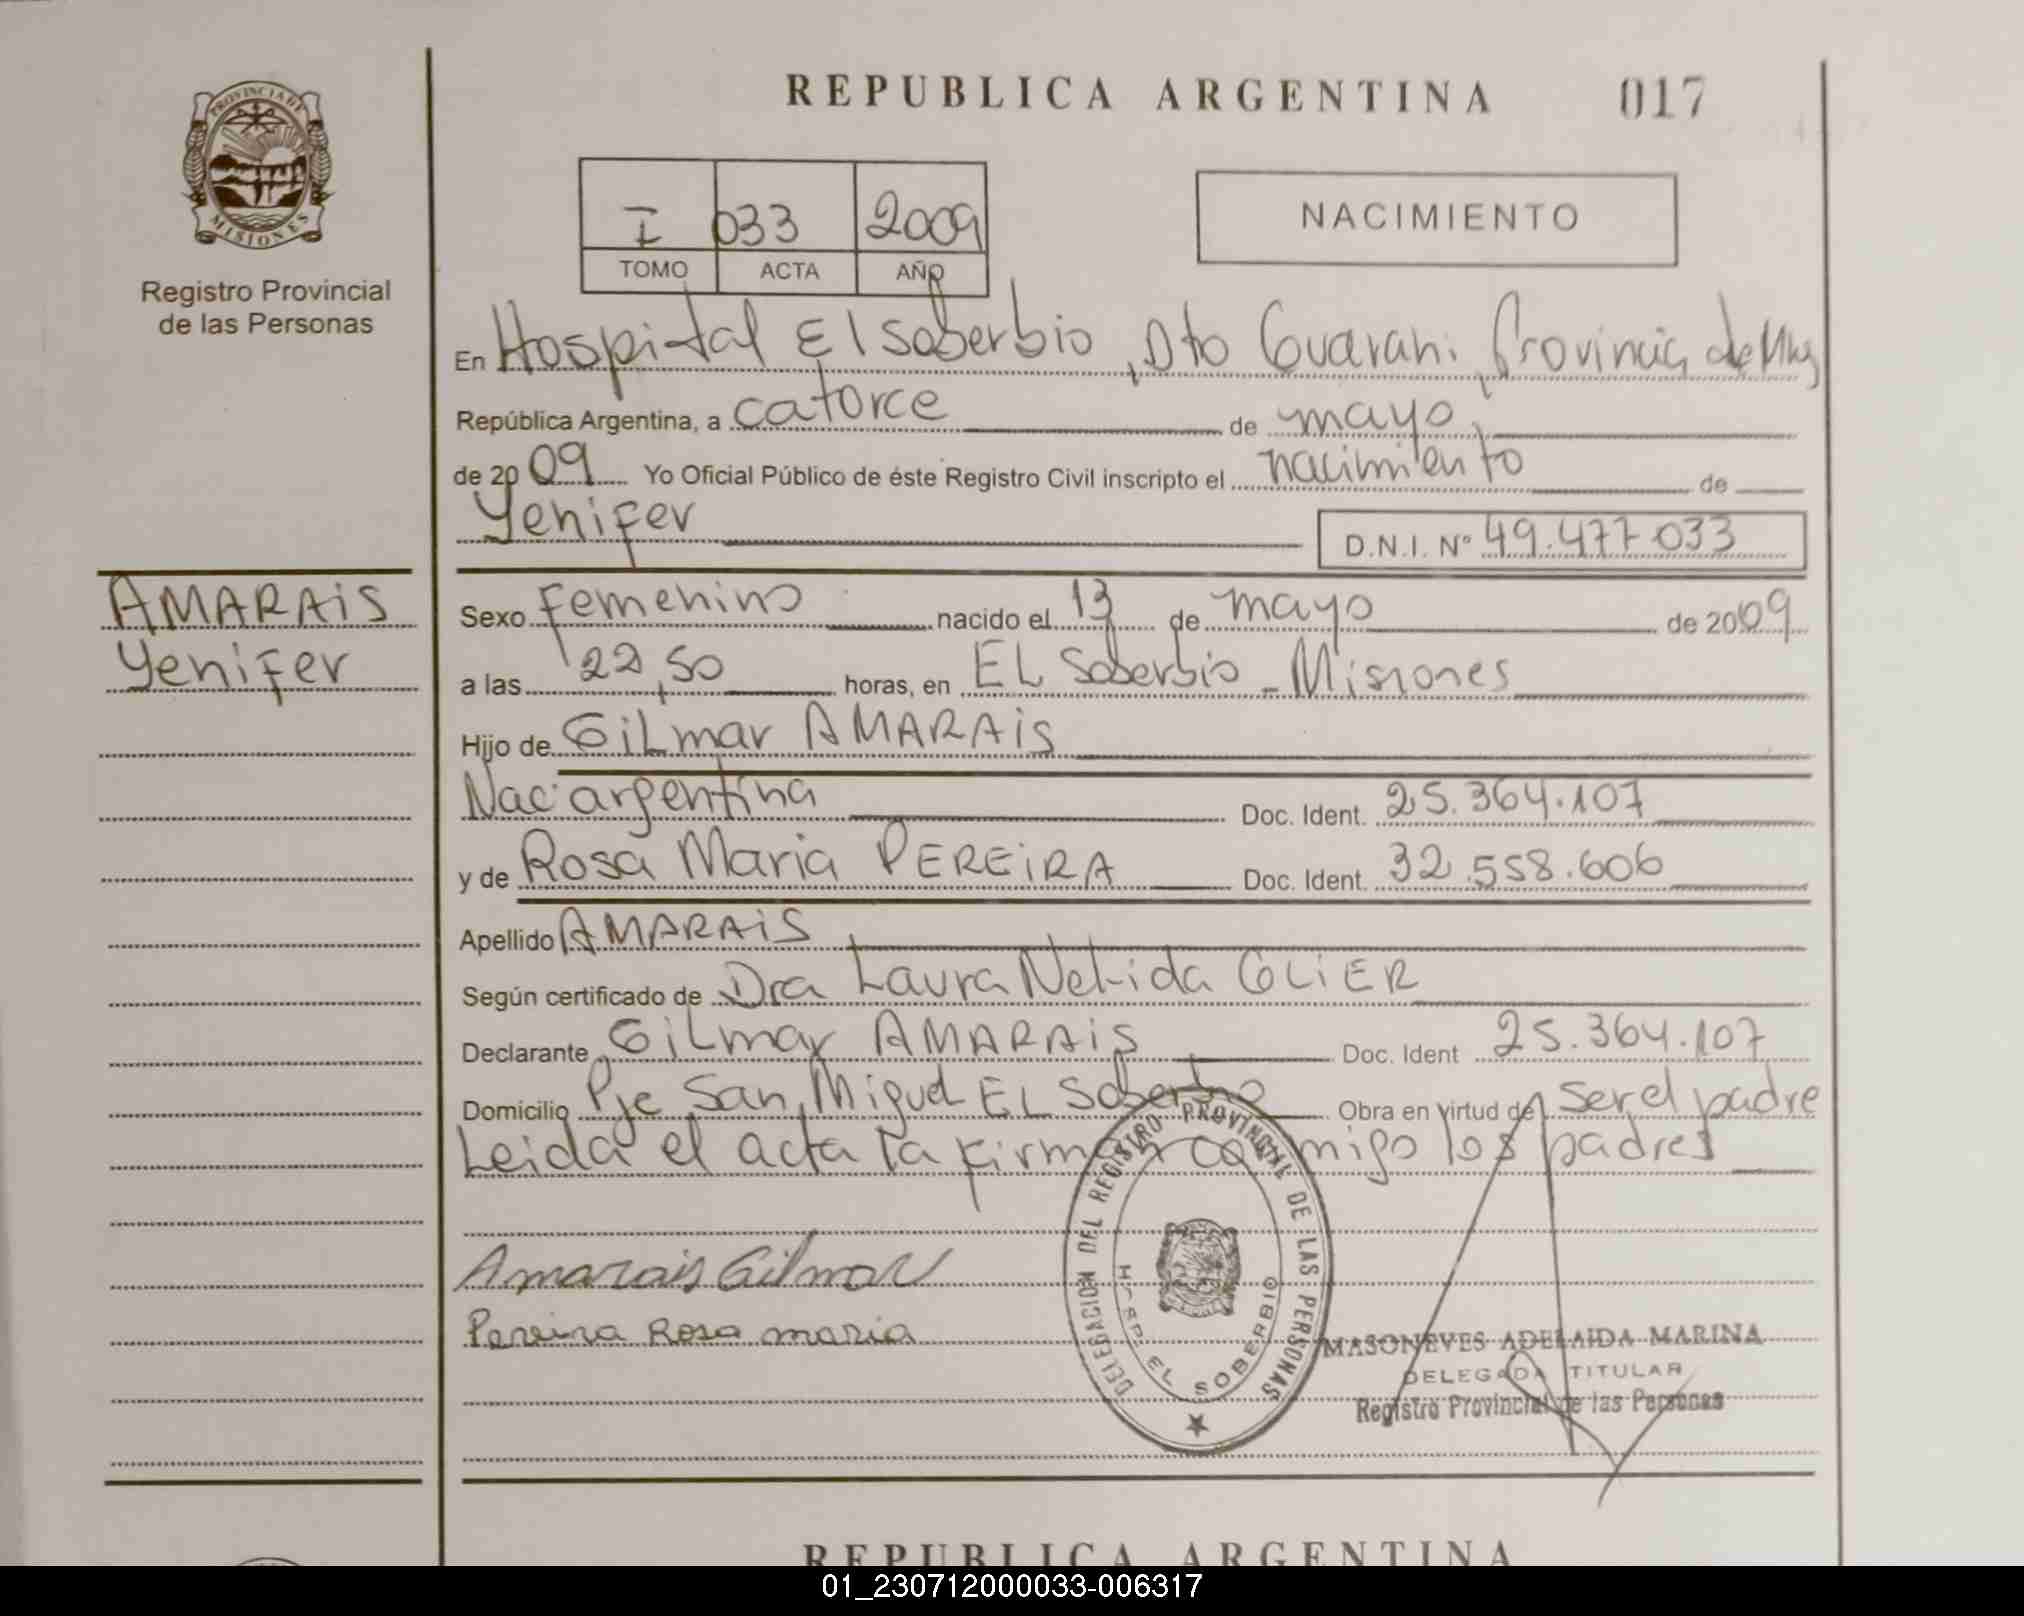 REPUBLICA ARGENTINA 017
PROVINCIA DE
MISIONES
Registro Provincial
de las Personas
I 033 2009
TOMO ACTA AÑO
NACIMIENTO
En Hospital El Soberbio, Dto Guarani, Provincia de Mnes
República Argentina, a catorce de mayo,
de 2009 Yo Oficial Público de éste Registro Civil inscripto el nacimiento de
Yenifer D.N.I. Nº 49.477.033
AMARAiS
Yenifer
Sexo Femenino nacido el 13 de mayo de 2009
a las 22,50 horas, en EL Soberbio - Misiones
Hijo de GiLmar AMARAiS
Nac. argentina Doc. Ident. 25.364.107
y de Rosa Maria PEREiRA Doc. Ident. 32.558.606
Apellido AMARAiS
Según certificado de Dra Laura Nelida GLiER
Declarante GiLmar AMARAiS Doc. Ident 25.364.107
Domicilio Pje San Miguel EL Soberbio Obra en virtud de ser el padre
Leida el acta la firman conmigo los padres
Amarais Gilmar
Pereira Rosa maria
DELEGACION DEL REGISTRO PROVINCIAL DE LAS PERSONAS
EL SOBERBIO
MASONEVES ADELAIDA MARINA
DELEGADA TITULAR
Registro Provincial de las Personas
REPUBLICA ARGENTINA
01_230712000033-006317